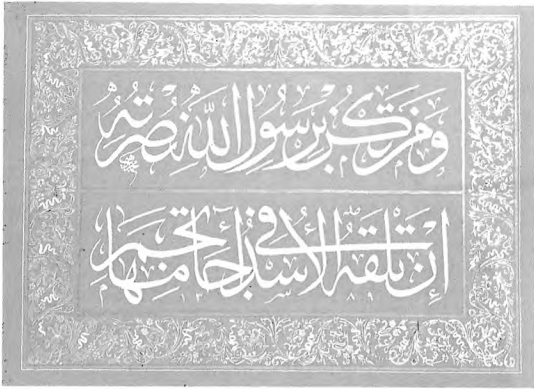 ومن تكن برسول الله نصرته
إن تلقه الأسد في آجامها تجم